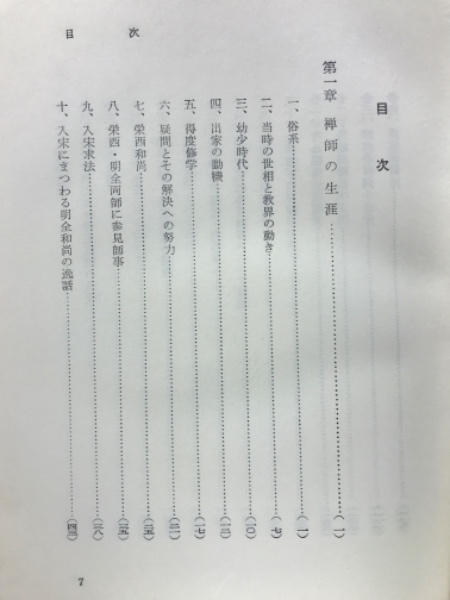 目次
目次
第一章 禅師の生涯……(一)
一、俗系……(一)
二、当時の世相と教界の動き……(七)
三、幼少時代……(一〇)
四、出家の動機……(一三)
五、得度修学……(一七)
六、疑問とその解決への努力……(二一)
七、栄西和尚……(二五)
八、栄西・明全両師に参見師事……(二五)
九、入宋求法……(三八)
十、入宋にまつわる明全和尚の逸話……(四三)
7